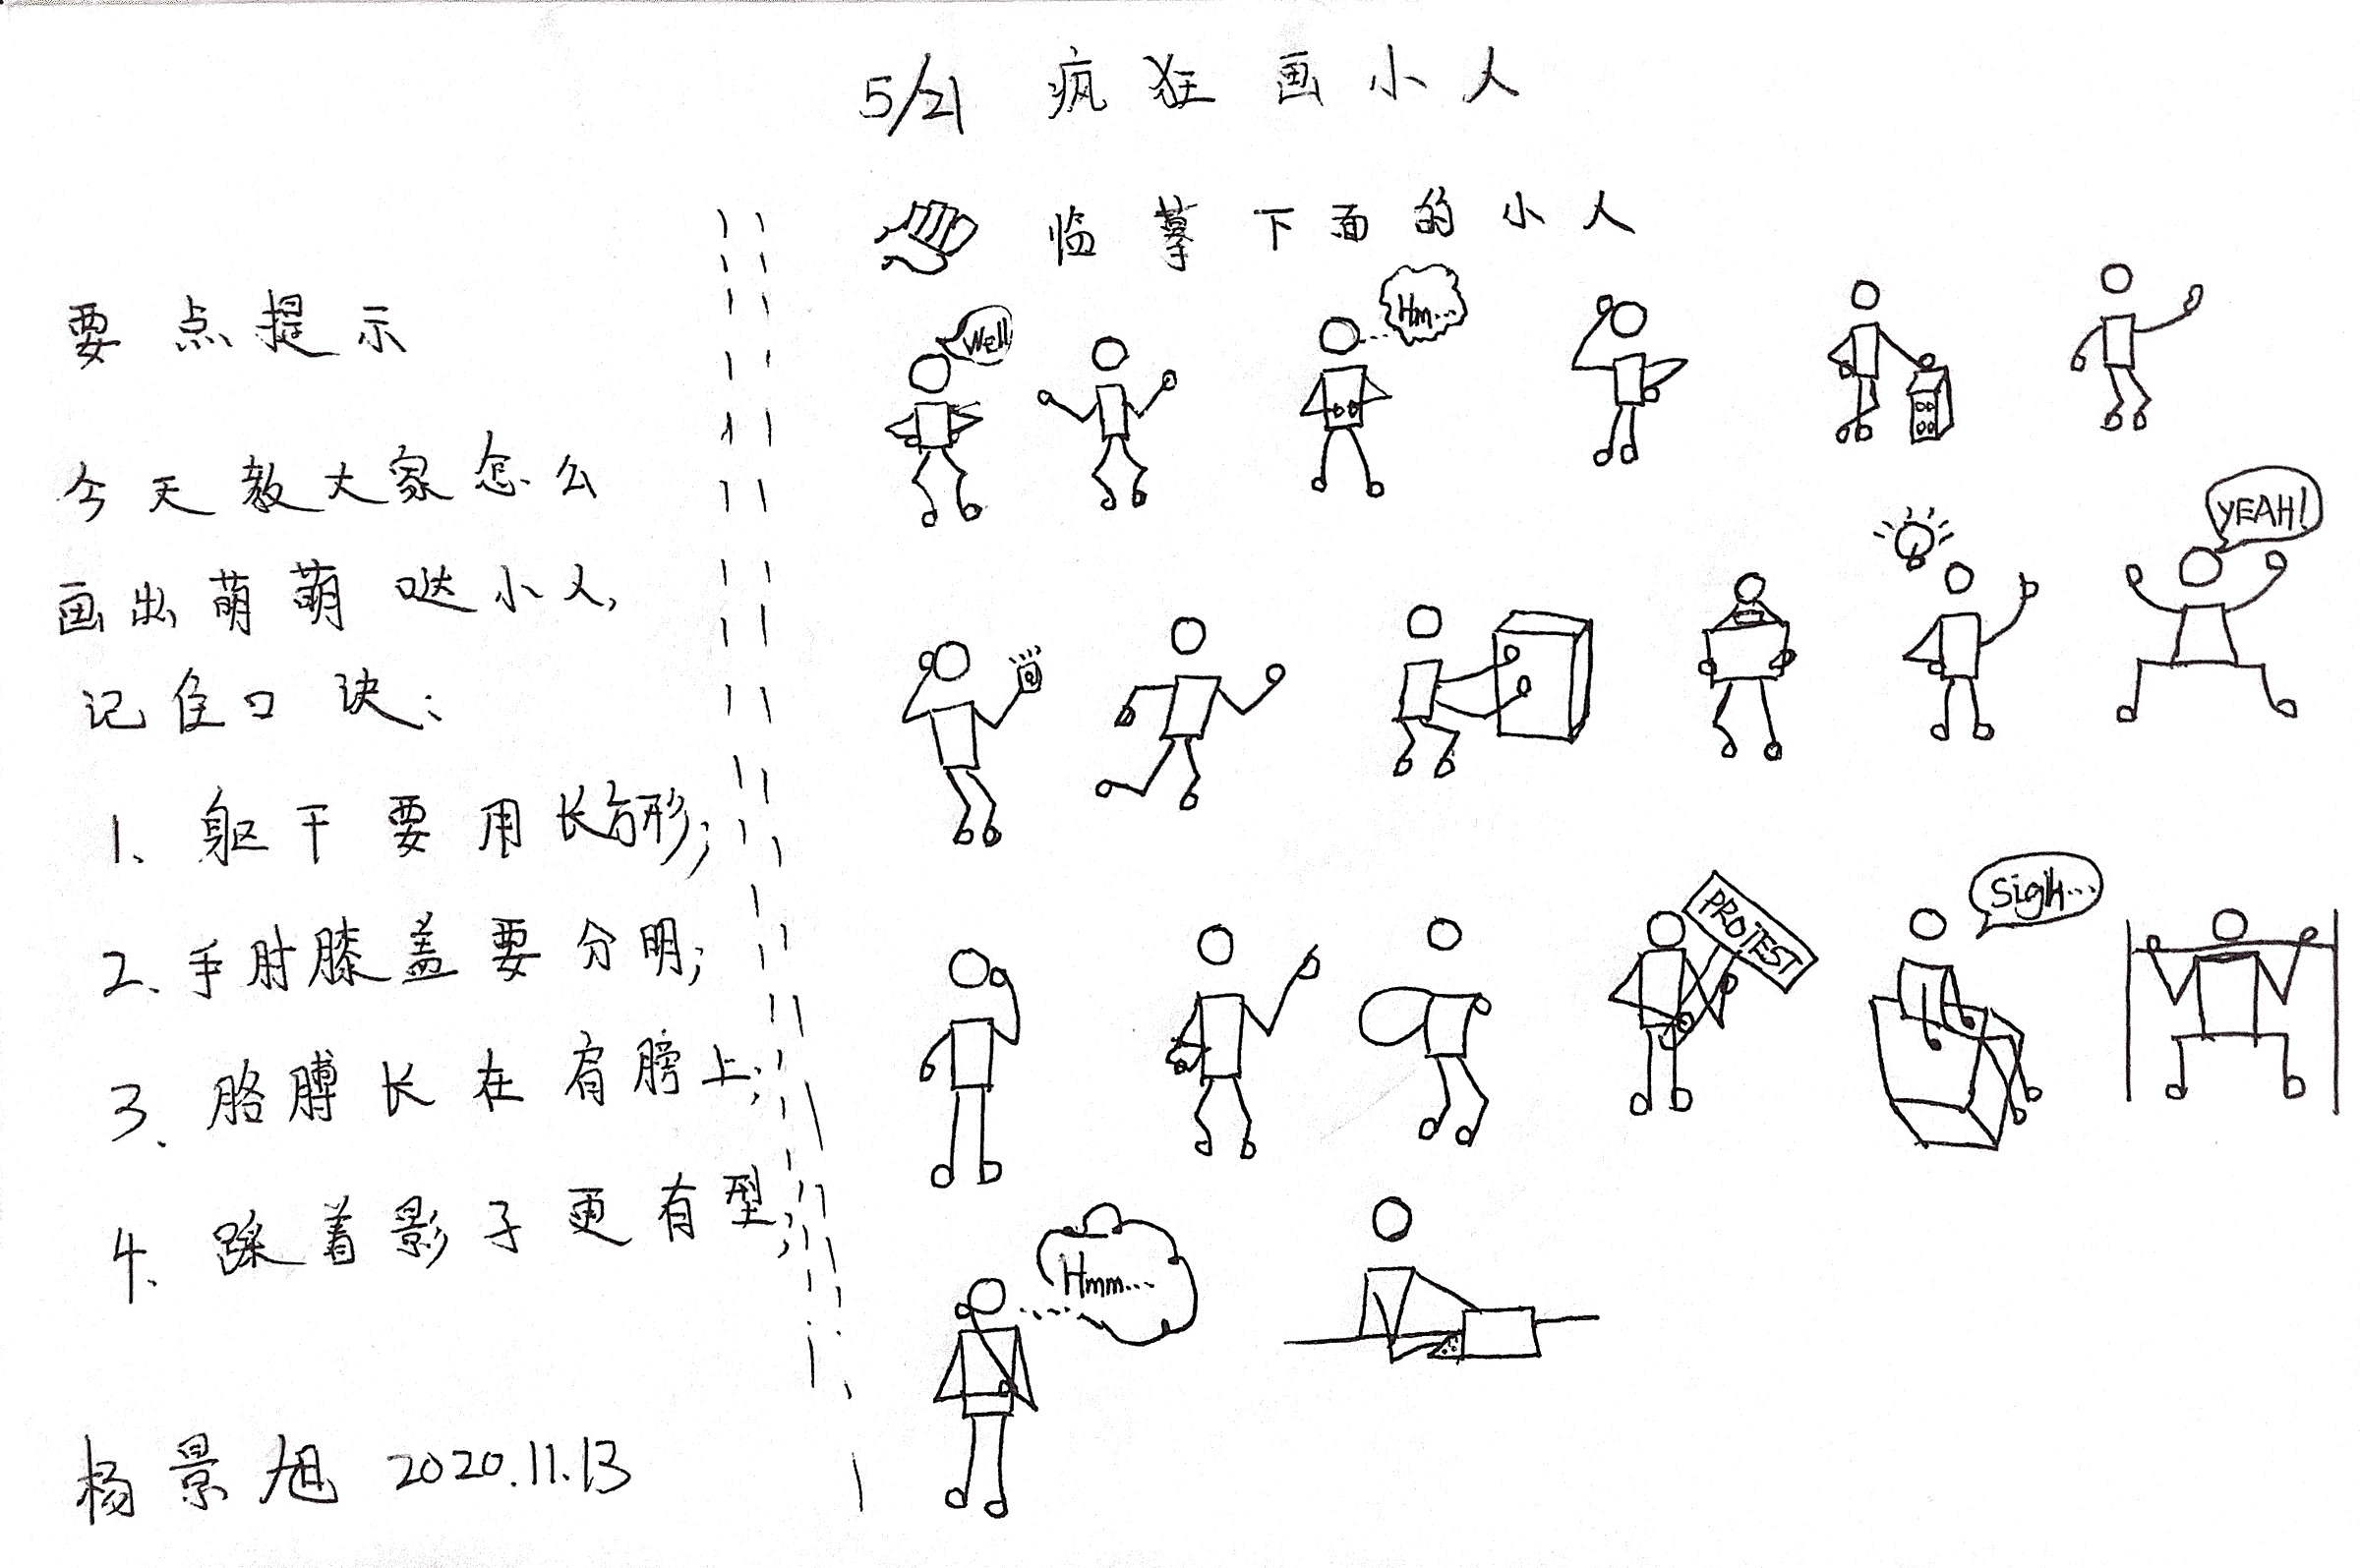 5/21 疯狂画小人
临摹下面的小人
要点提示
今天教大家怎么
画出萌萌哒小人,
记住口诀:
1、躯干要用长方形;
2、手肘膝盖要分明;
3、胳膊长在肩膀上;
4、踩着影子更有型;
杨景旭 2020.11.13
Well
Hm...
YEAH!
PROTEST
Sigh...
Hmm...